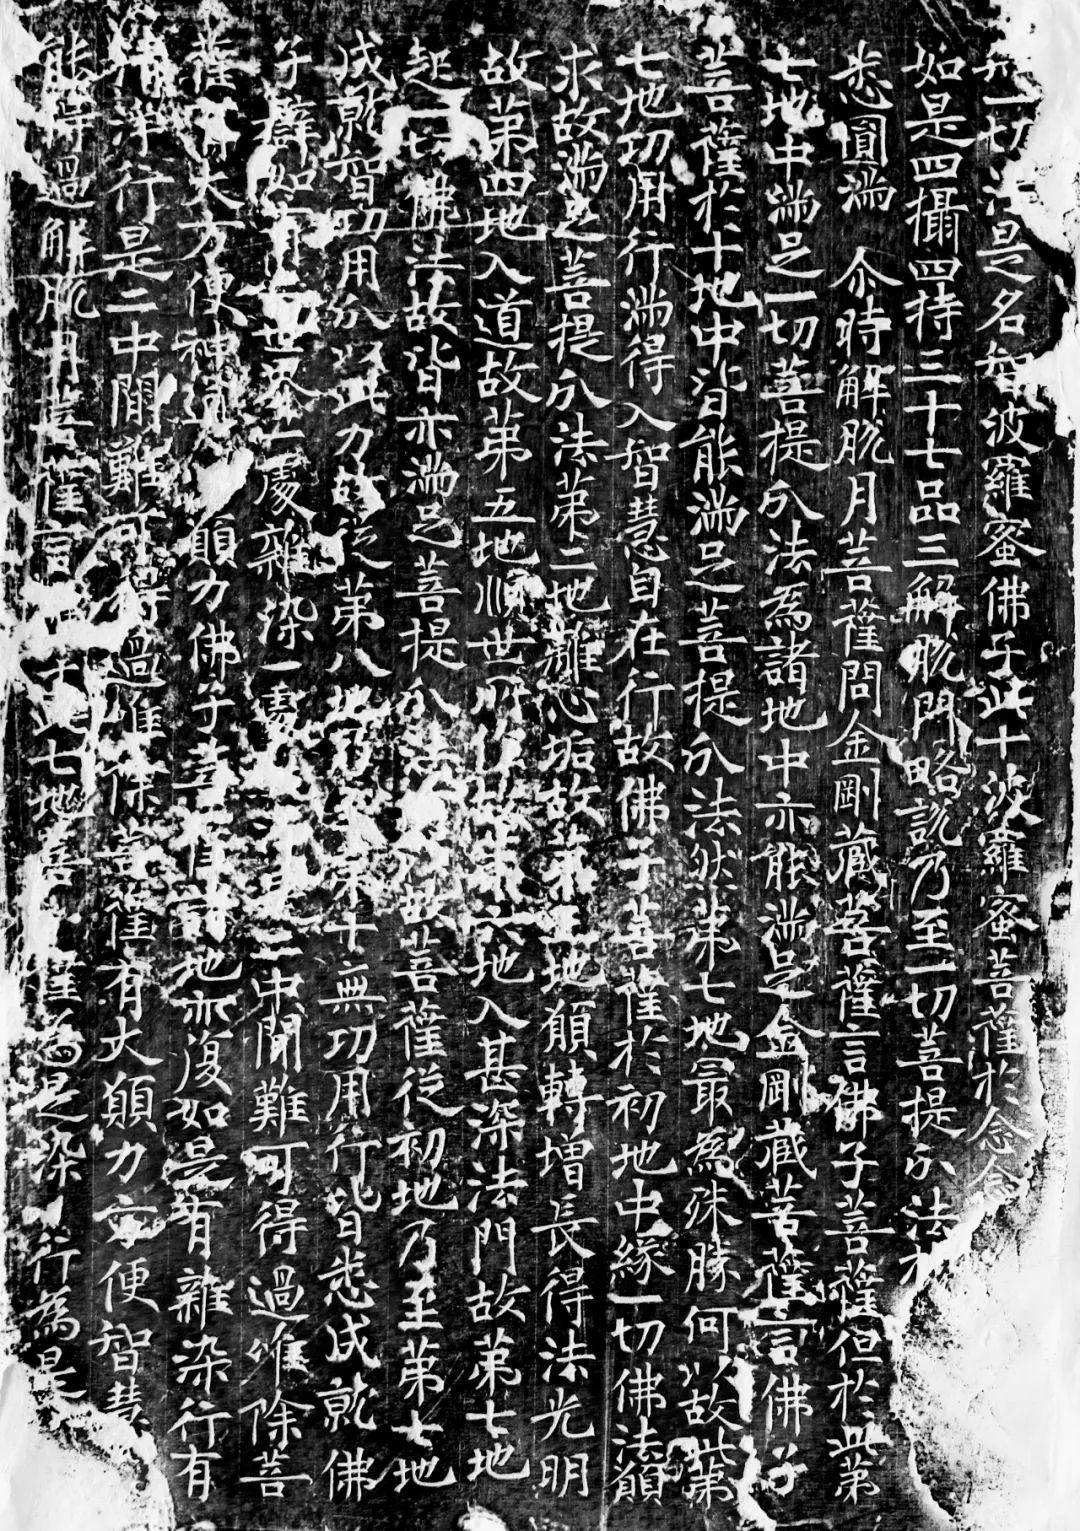 一切法是名智波羅蜜佛子此十波羅蜜菩薩於念念
如是四攝四持三十七品三解脫門略說乃至一切菩提分法於
悉圓滿 尒時解脫月菩薩問金剛藏菩薩言佛子菩薩但於此第
七地中滿足一切菩提分法為諸地中亦能滿足金剛藏菩薩言佛子
菩薩於十地中皆能滿足菩提分法然第七地最為殊勝何以故此第
七地功用行滿得入智慧自在行故佛子菩薩於初地中緣一切佛法願
求故滿足菩提分法第二地離心垢故第三地願轉增長得法光明
故第四地入道故第五地順世所作故第六地入甚深法門故第七地
起一切佛法故皆亦滿足菩提分法何以故菩薩從初地乃至第七地
成就智功用分以此力故從第八地乃至第十無功用行皆悉成就佛
子譬如有二世界一處雜染一處二中間難可得過唯除菩
薩有大方便神通願力佛子菩薩諸地亦復如是有雜染行有
清淨行是二中間難可得過唯除菩薩有大願力方便智慧
能得過解脫月菩薩言佛子此七地菩薩為是染行為是